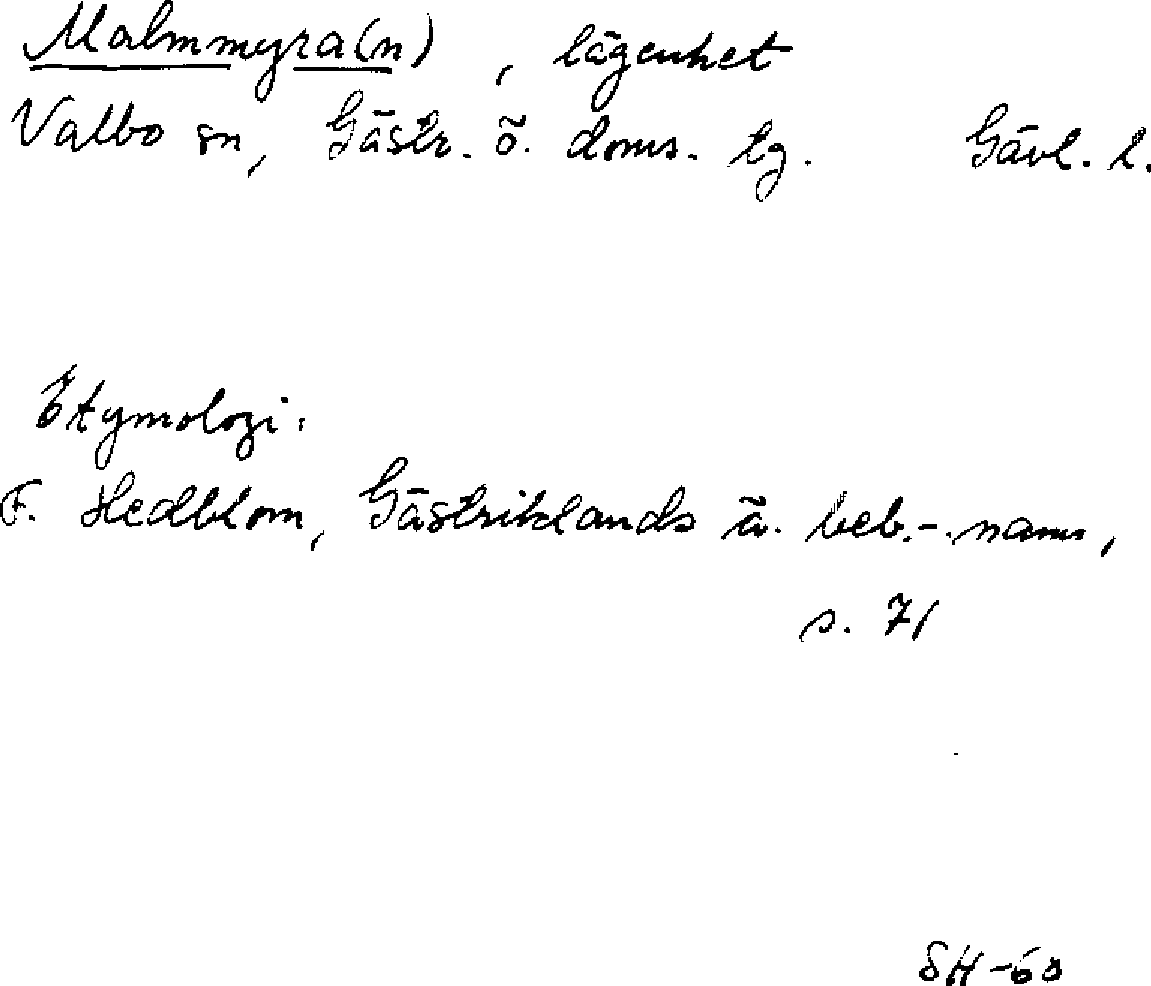 Malmmyra(n), lägenhet
Valbo sn, Gästr. ö. doms. tg. Gävl. l.
Etymologi:
F. Hedblom, Gästriklands ä. beb.-namn,
s. 71
SH-60